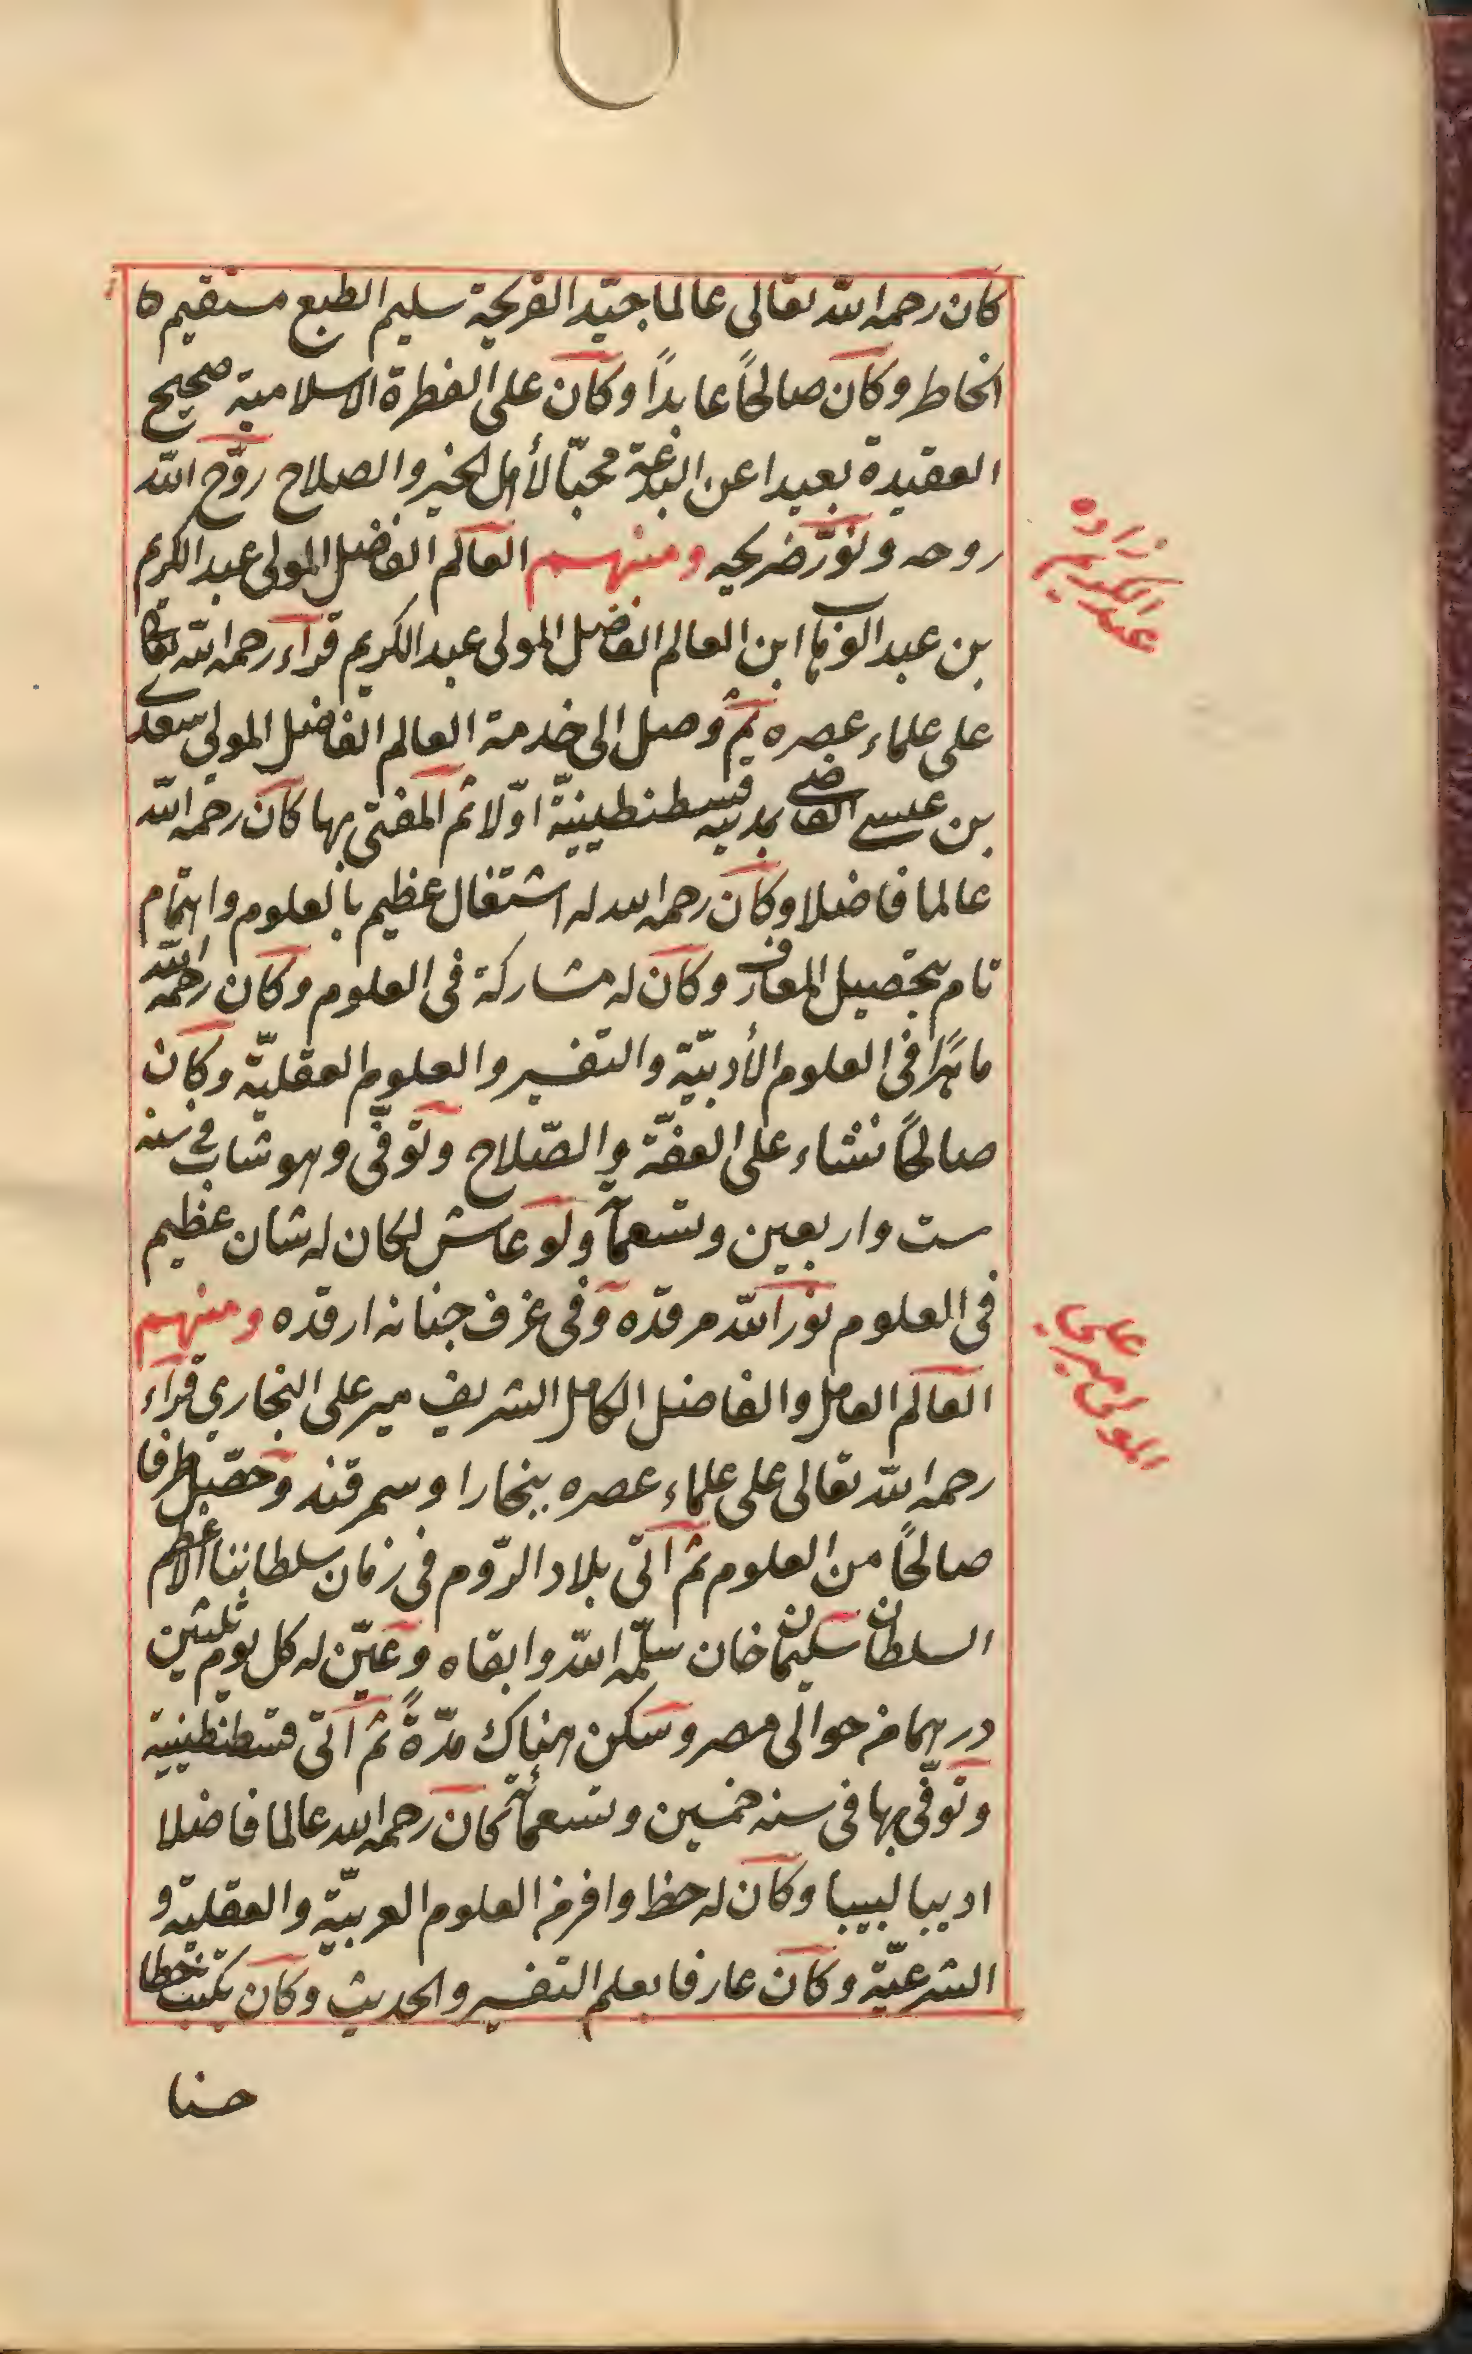 كان رحمه الله تعالى عالما جيّد القريحة سليم الطبع مستقيم
الخاطر وكان صالحًا عابدًا وكان على الفطرة الاسلامية صحيح
العقيدة بعيدا عن البدعة محبّا لأهل الخير والصلاح روّح الله
روحه ونوّر ضريحه ومنهم العالم الفاضل المولى عبد الكريم
زاده
عبد الكريم
بن عبد الوهاب ابن العالم الفاضل المولى عبد الكريم قراء رحمه الله تعالى
على علماء عصره ثم وصل الى خدمة العالم الفاضل المولى سعدى
بن عيسى القاضى بمدينه قسطنطينيّة اوّلا ثم المفتى بها كان رحمه الله
عالما فاضلا وكان رحمه الله له اشتغال عظيم بالعلوم واهتمام
تام بتحصيل المعارف وكان له مشاركة فى العلوم وكان رحمه الله
ماهرًا فى العلوم الأدبيّة والتفسير والعلوم العقليّة وكان
صالحًا نشاء على العفّة والصّلاح وتوفّى وهو شاب فى سنه
ست واربعين وتسعمآ ولو عاش لكان له شان عظيم
فى العلوم نور الله مرقده وفى غرف جنانه ارقده ومنهم
على
المولى مير
العالم العامل والفاضل الكامل الشريف مير على البخاري قراء
رحمه الله تعالى على علماء عصره ببخارا وسمرقند وحصّل طرفا
صالحًا من العلوم ثم اتى بلاد الرّوم فى زمان سلطاننا الاعظم
السلطان سليمان خان سلّمه الله وابقاه وعيّن له كل يوم ثلثين
درهما من حوالى مصر وسكن هناك مدّةً ثم اتى قسطنطينية
وتوفّى بها فى سنه خمسين وتسعمائة كان رحمه الله عالما فاضلا
اديبا لبيبا وكان له حظ وافر من العلوم العربيّة والعقلية و
الشرعيّة وكان عارفا بعلم التفسير والحديث وكان يكتب خطا
حسنا